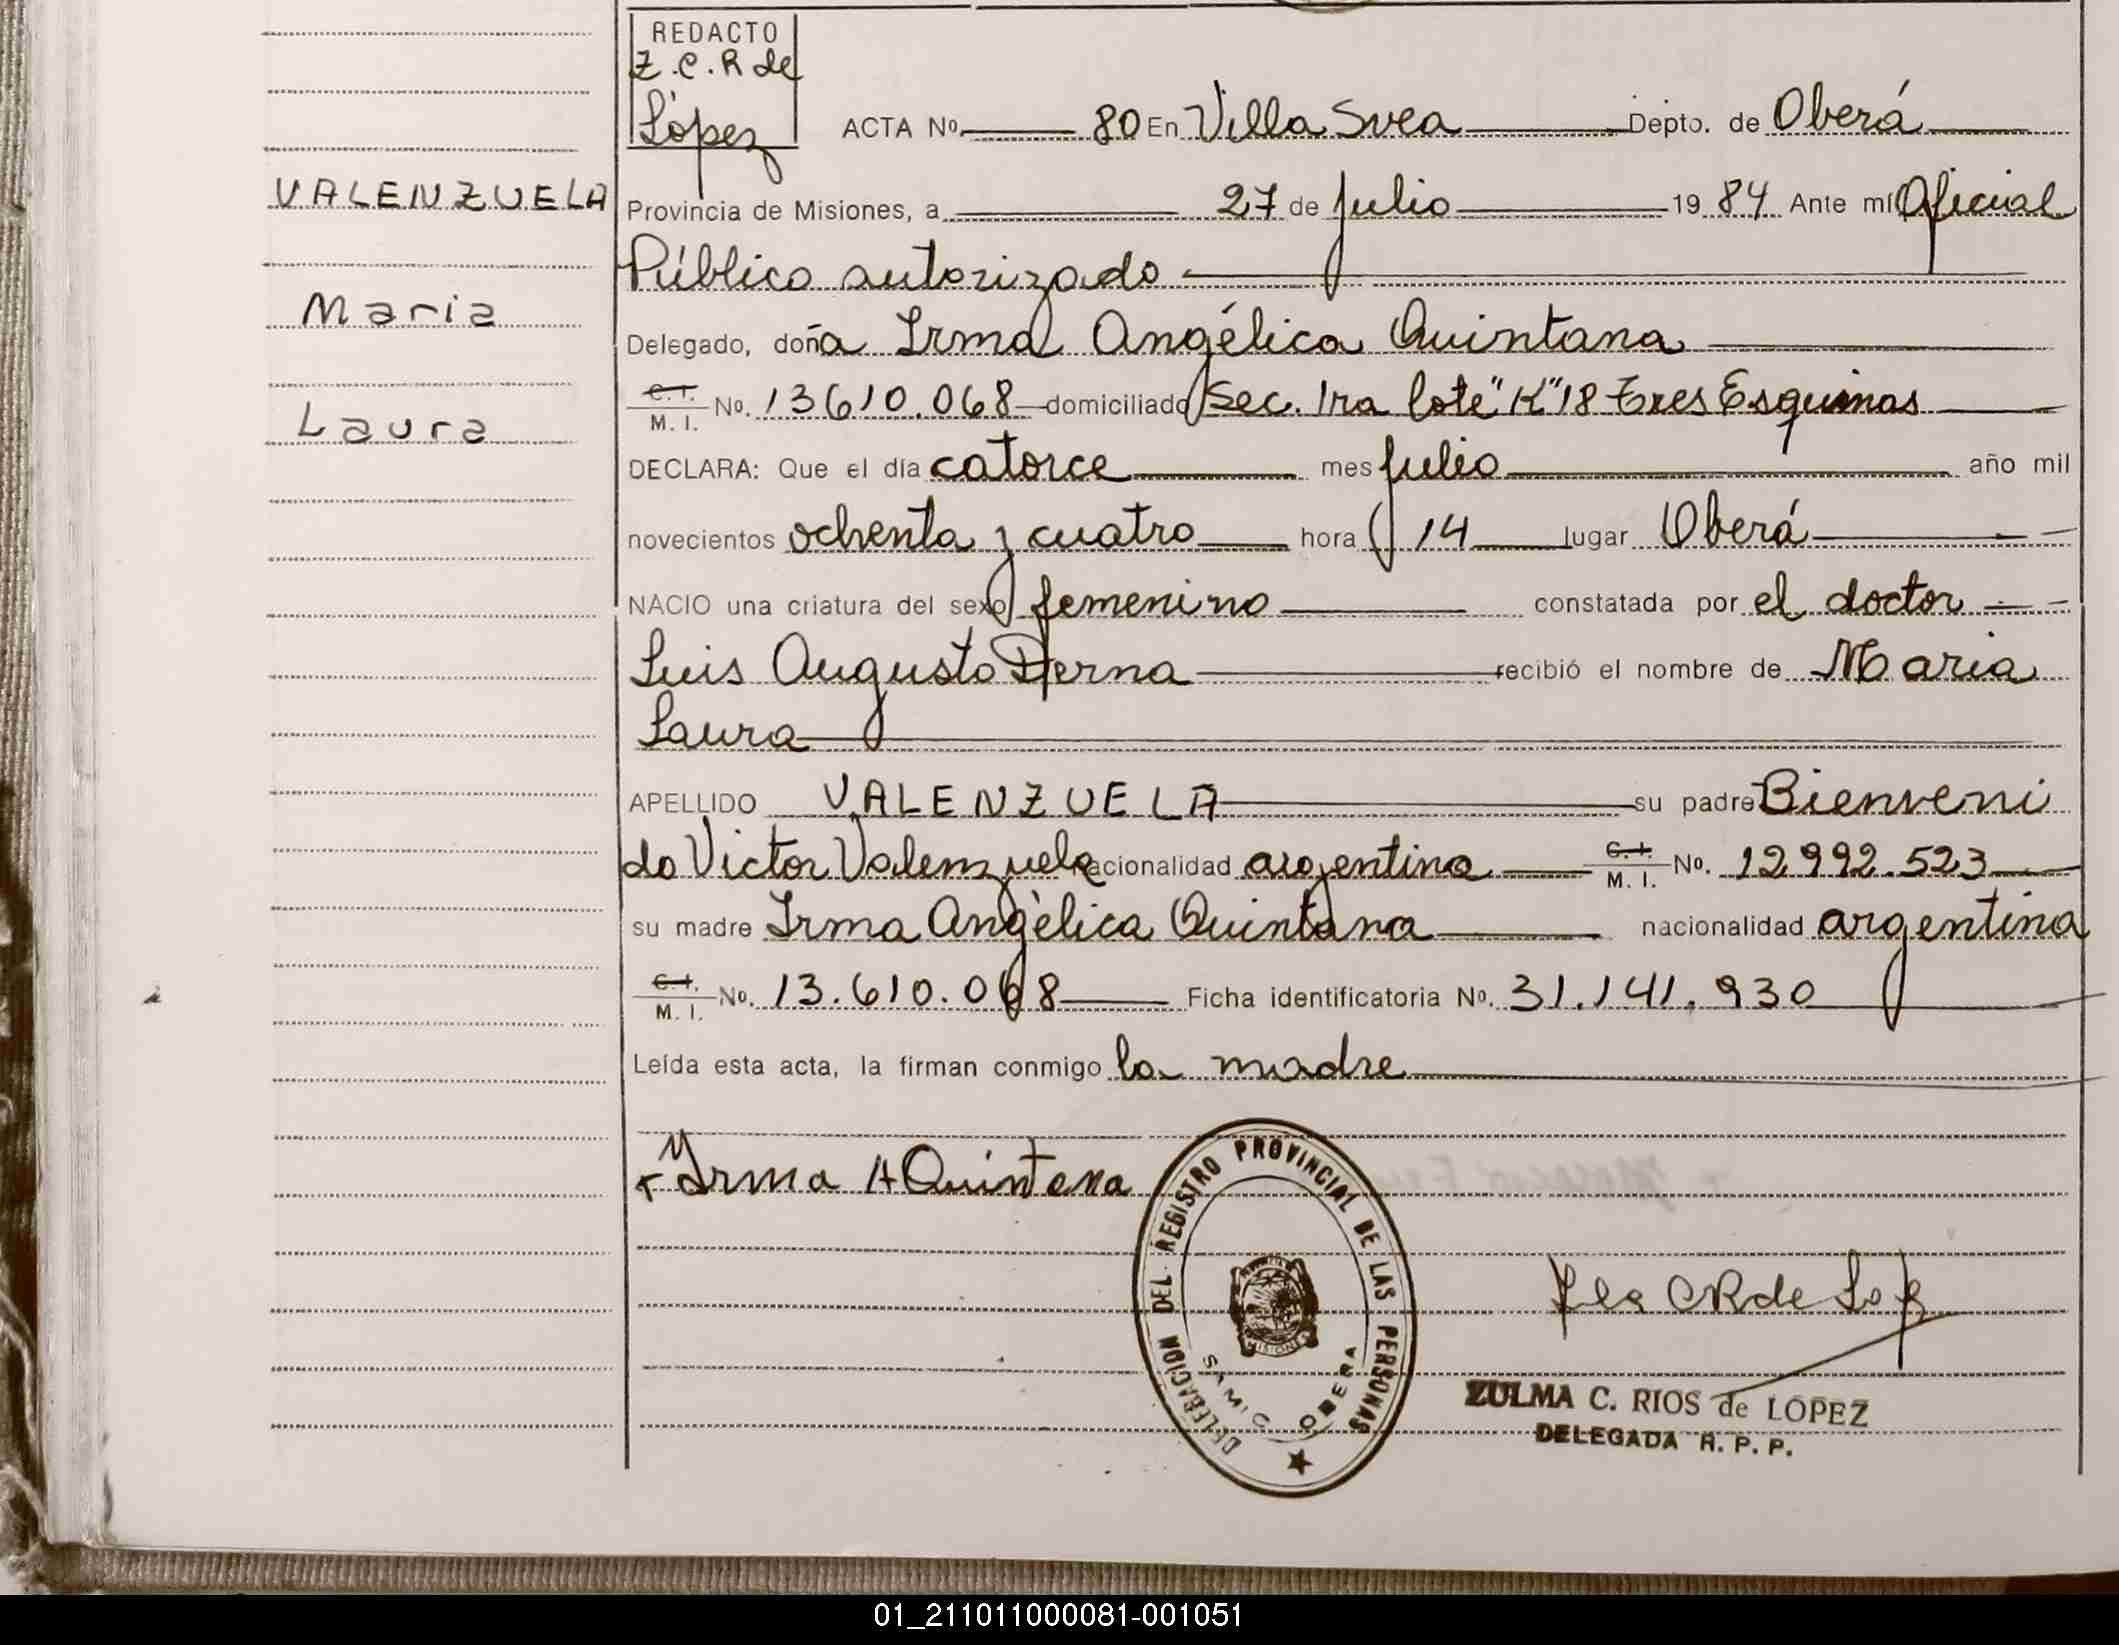 REDACTO
Z.C.R de
López
ACTA No. 80 En Villa Svea Depto. de Oberá
VALENZUELA
Maria
Laura
Provincia de Misiones, a 27 de julio 1984 Ante mí Oficial
Público autorizado
Delegado, doña Irma Angélica Quintana
C.I. M.I. No. 13610.068 domiciliado Sec. 1ra lote "K" 18 Tres Esquinas
DECLARA: Que el día catorce mes julio año mil
novecientos ochenta y cuatro hora 14 lugar Oberá
NACIO una criatura del sexo femenino constatada por el doctor
Luis Augusto Derna recibió el nombre de Maria
Laura
APELLIDO VALENZUELA su padre Bienveni
do Victor Valenzuela nacionalidad argentina C.I. M.I. No. 12992.523
su madre Irma Angélica Quintana nacionalidad argentina
C.I. M.I. No. 13.610.068 Ficha identificatoria No. 31.141.930
Leída esta acta, la firman conmigo la madre
Irma A Quintana
DELEGACION DEL REGISTRO PROVINCIAL DE LAS PERSONAS
MISIONES
SAMIC OBERA
ZULMA C. RIOS de LOPEZ
DELEGADA R. P. P.
01_211011000081-001051